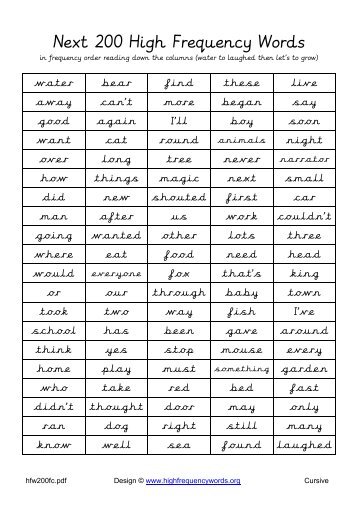 Next 200 High Frequency Words
in frequency order reading down the columns (water to laughed then let's to grow)
water bear find these live
away can't more began say
good again I'll boy soon
want cat round animals night
over long tree never narrator
how things magic next small
did new shouted first car
man after us work couldn't
going wanted other lots three
where eat food need head
would everyone fox that's king
or our through baby town
took two way fish I've
school has been gave around
think yes stop mouse every
home play must something garden
who take red bed fast
didn't thought door may only
ran dog right still many
know well sea found laughed
hfw200fc.pdf Design © www.highfrequencywords.org Cursive